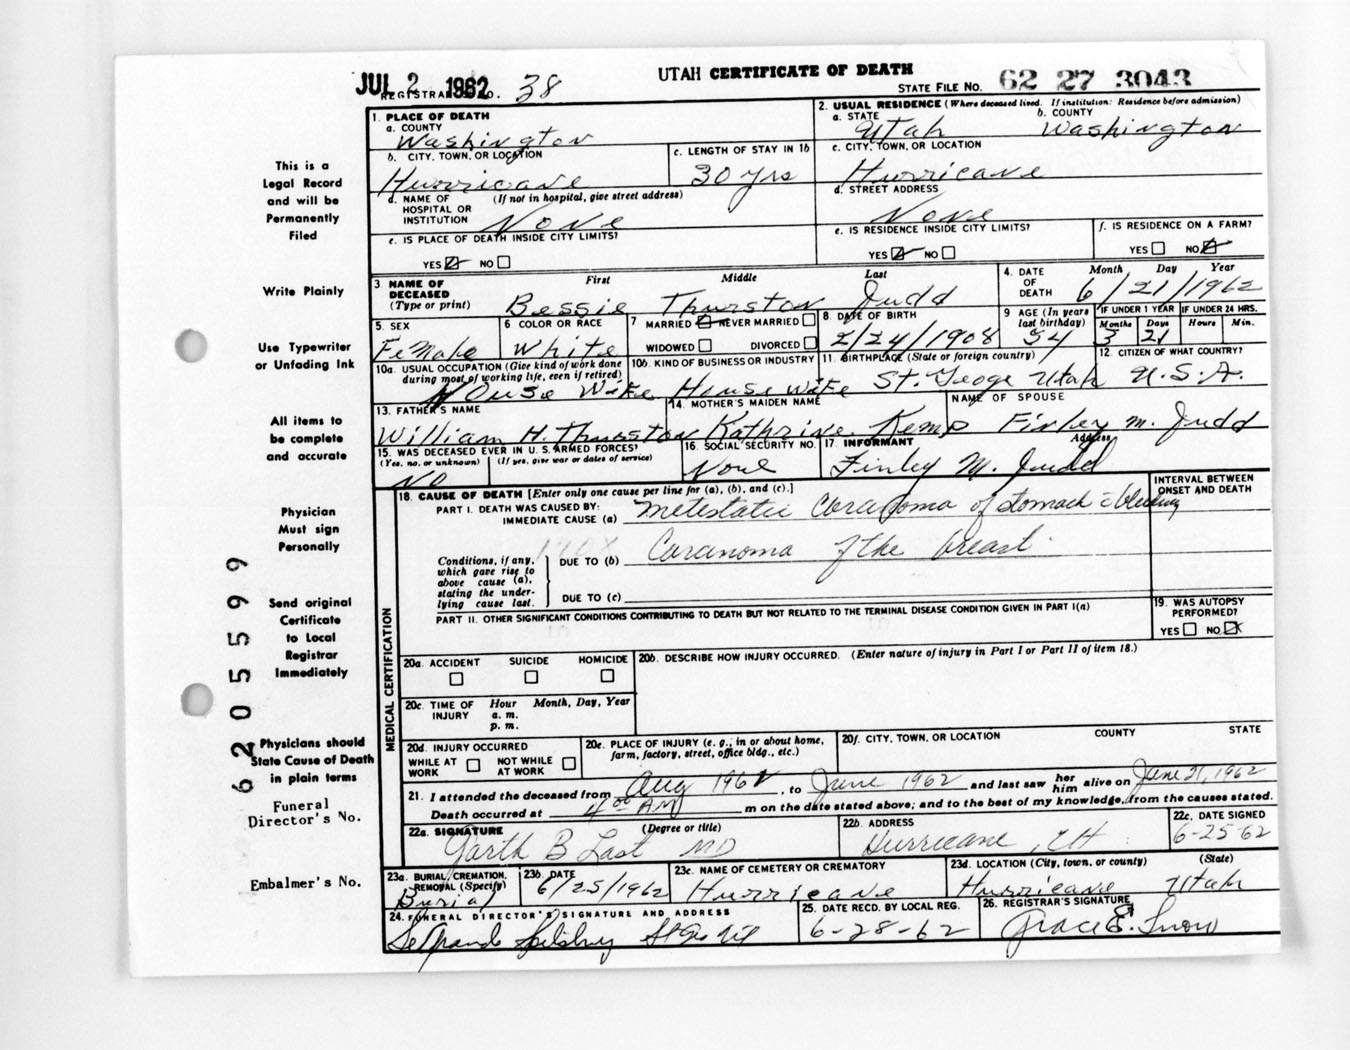 JUL 2 1962
UTAH CERTIFICATE OF DEATH
REGISTRAR NO. 38
STATE FILE NO. 62 27 3043
1. PLACE OF DEATH
a. COUNTY
Washington
2. USUAL RESIDENCE (Where deceased lived. If institution: Residence before admission)
a. STATE
Utah
b. COUNTY
Washington
b. CITY, TOWN, OR LOCATION
Hurricane
c. LENGTH OF STAY IN 1b
30 yrs
c. CITY, TOWN, OR LOCATION
Hurricane
d. NAME OF HOSPITAL OR INSTITUTION (If not in hospital, give street address)
None
d. STREET ADDRESS
None
e. IS PLACE OF DEATH INSIDE CITY LIMITS?
YES NO
e. IS RESIDENCE INSIDE CITY LIMITS?
YES NO
f. IS RESIDENCE ON A FARM?
YES NO
3 NAME OF DECEASED (Type or print)
First Middle Last
Bessie Thurston Judd
4. DATE OF DEATH
Month Day Year
6/21/1962
5. SEX
FeMale
6 COLOR OR RACE
White
7 MARRIED NEVER MARRIED
WIDOWED DIVORCED
8. DATE OF BIRTH
2/24/1908
9 AGE (In years last birthday)
54
IF UNDER 1 YEAR
Months Days
3 21
IF UNDER 24 HRS.
Hours Min.
10a. USUAL OCCUPATION (Give kind of work done during most of working life, even if retired)
House Wife
10b. KIND OF BUSINESS OR INDUSTRY
House Wife
11. BIRTHPLACE (State or foreign country)
St. Geoge Utah
12. CITIZEN OF WHAT COUNTRY?
U.S.A.
13. FATHER'S NAME
William H. Thurston
14. MOTHER'S MAIDEN NAME
Kathrine Kemp
NAME OF SPOUSE
Finley M. Judd
15. WAS DECEASED EVER IN U. S. ARMED FORCES?
(Yes, no, or unknown) (If yes, give war or dates of service)
No
16. SOCIAL SECURITY NO.
None
17. INFORMANT Address
Finley M. Judd
18. CAUSE OF DEATH [Enter only one cause per line for (a), (b), and (c).]
INTERVAL BETWEEN ONSET AND DEATH
PART I. DEATH WAS CAUSED BY:
IMMEDIATE CAUSE (a) Metestatic Carcinoma of stomach c̄ bleeding
Conditions, if any, which gave rise to above cause (a), stating the underlying cause last.
DUE TO (b) Carcinoma of the breast
DUE TO (c)
PART II. OTHER SIGNIFICANT CONDITIONS CONTRIBUTING TO DEATH BUT NOT RELATED TO THE TERMINAL DISEASE CONDITION GIVEN IN PART I(a)
19. WAS AUTOPSY PERFORMED?
YES NO
MEDICAL CERTIFICATION
20a. ACCIDENT SUICIDE HOMICIDE
20b. DESCRIBE HOW INJURY OCCURRED. (Enter nature of injury in Part I or Part II of item 18.)
20c. TIME OF INJURY
Hour Month, Day, Year
a. m.
p. m.
20d. INJURY OCCURRED
WHILE AT WORK NOT WHILE AT WORK
20e. PLACE OF INJURY (e. g., in or about home, farm, factory, street, office bldg., etc.)
20f. CITY, TOWN, OR LOCATION COUNTY STATE
21. I attended the deceased from Aug 1961, to June 1962 and last saw her him alive on June 21, 1962
Death occurred at 4:00 AM m on the date stated above; and to the best of my knowledge, from the causes stated.
22a. SIGNATURE (Degree or title)
Garth B Last MD
22b. ADDRESS
Hurricane, UH
22c. DATE SIGNED
6-25-62
23a. BURIAL, CREMATION, REMOVAL (Specify)
Burial
23b. DATE
6/25/1962
23c. NAME OF CEMETERY OR CREMATORY
Hurricane
23d. LOCATION (City, town, or county) (State)
Hurricane Utah
24. FUNERAL DIRECTOR'S SIGNATURE AND ADDRESS
25. DATE RECD. BY LOCAL REG.
6-28-62
26. REGISTRAR'S SIGNATURE
Grace E. Snow
This is a
Legal Record
and will be
Permanently
Filed
Write Plainly
Use Typewriter
or Unfading Ink
All items to
be complete
and accurate
Physician
Must sign
Personally
Send original
Certificate
to Local
Registrar
Immediately
Physicians should
State Cause of Death
in plain terms
Funeral
Director's No.
Embalmer's No.
6205599